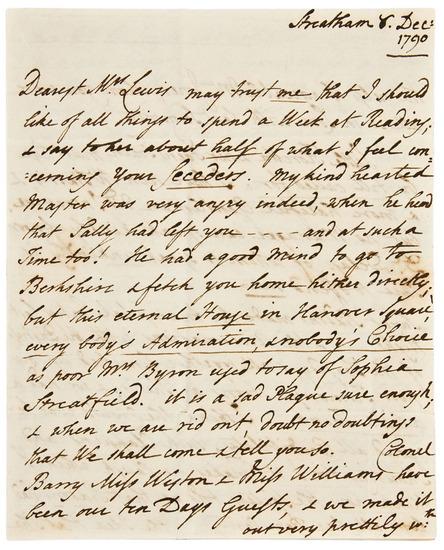 Streatham 8. Dec:
1790
Dearest Mrs Lewis may trust me that I should
like of all things to spend a Week at Reading;
& say to her about half of what I feel con=
=cerning your Seceders. My kind hearted
Master was very angry indeed, when he heard
that Sally had left you – – – and at such a
Time too! He had a good mind to go to
Berkshire & fetch you home hither directly,
but this eternal House in Hanover Square,
every body's Admiration, & nobody's Choice
as poor Mrs Byron used to say of Sophia
Streatfield. it is a sad Plague sure enough;
& when we are rid on't, doubt no doubtings
that We shall come & tell you so. Colonel
Barry Miss Weston & Miss Williams have
been our ten Days Guests, & we made it
out very prettily wth: